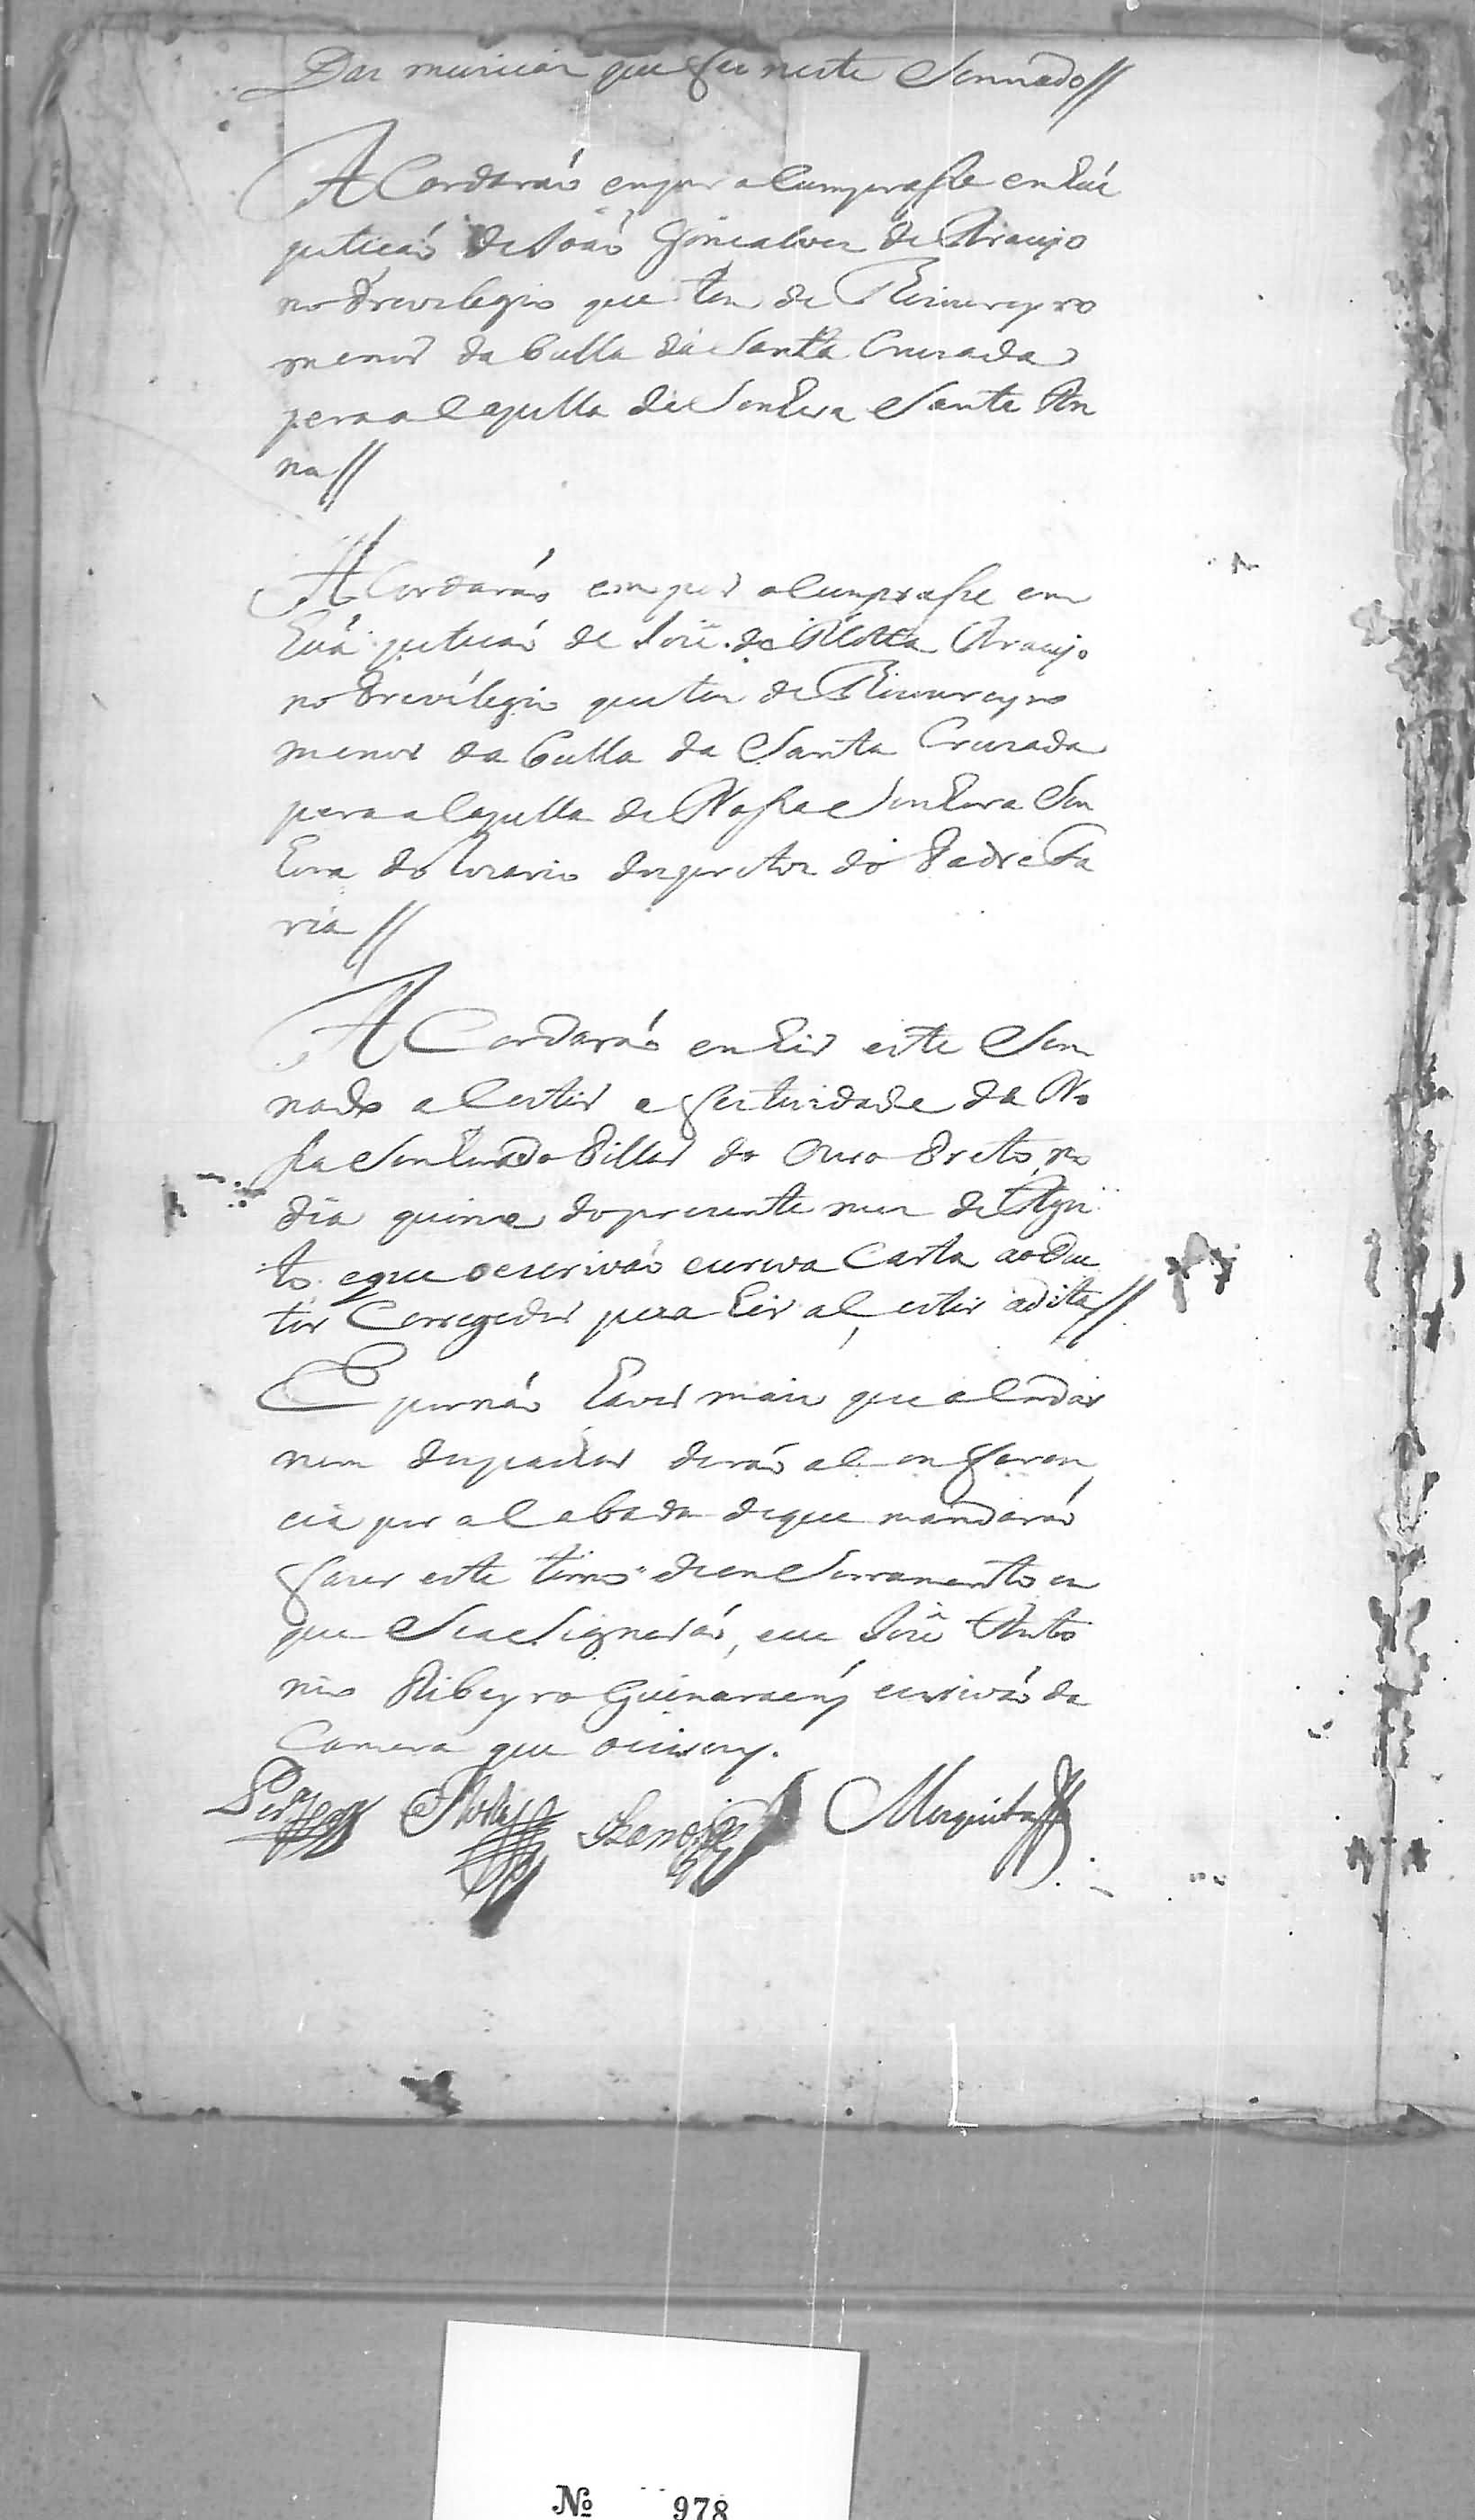 Das municas que fes neste Sennado//
ACordaráo em por o Cumprasse em húa
petiçáo de Joáo Gonçalves de Araujo
no Previlegio que tem de Thizoureyro
menor da bulla da Santa Cruzada
pera a Capella de Senhora Santa An
na//
ACordaráo em por o Cumprasse em
húa petiçáo de Joze da Motta Araujo
no Previlegio que tem de Thizoureyro
menor da bulla da Santa Cruzada
pera a Capella de Nossa Senhora Sen
hora do Rozario dos pretos do Padre Fa
ria//
ACordaráo em hir este Sen
nado acestir a festividade da No
ssa Senhora do Pillar do Ouro Preto no
dia quinze do prezente mez de Agos
to e que o escriváo escreva Carta ao Dou
tor Corregedor pera hir acestir a dita//
E por náo haver mais que aCordar
nem despachar deráo a Conferen
cia por aCabada de que mandaráo
fazer este termo de enSerramento em
que Se aSignaráo, e eu Joze Anto
nio Ribeyro Guimaraens escriváo da
Camera que o escrevy.
Mesquita
Nº 978